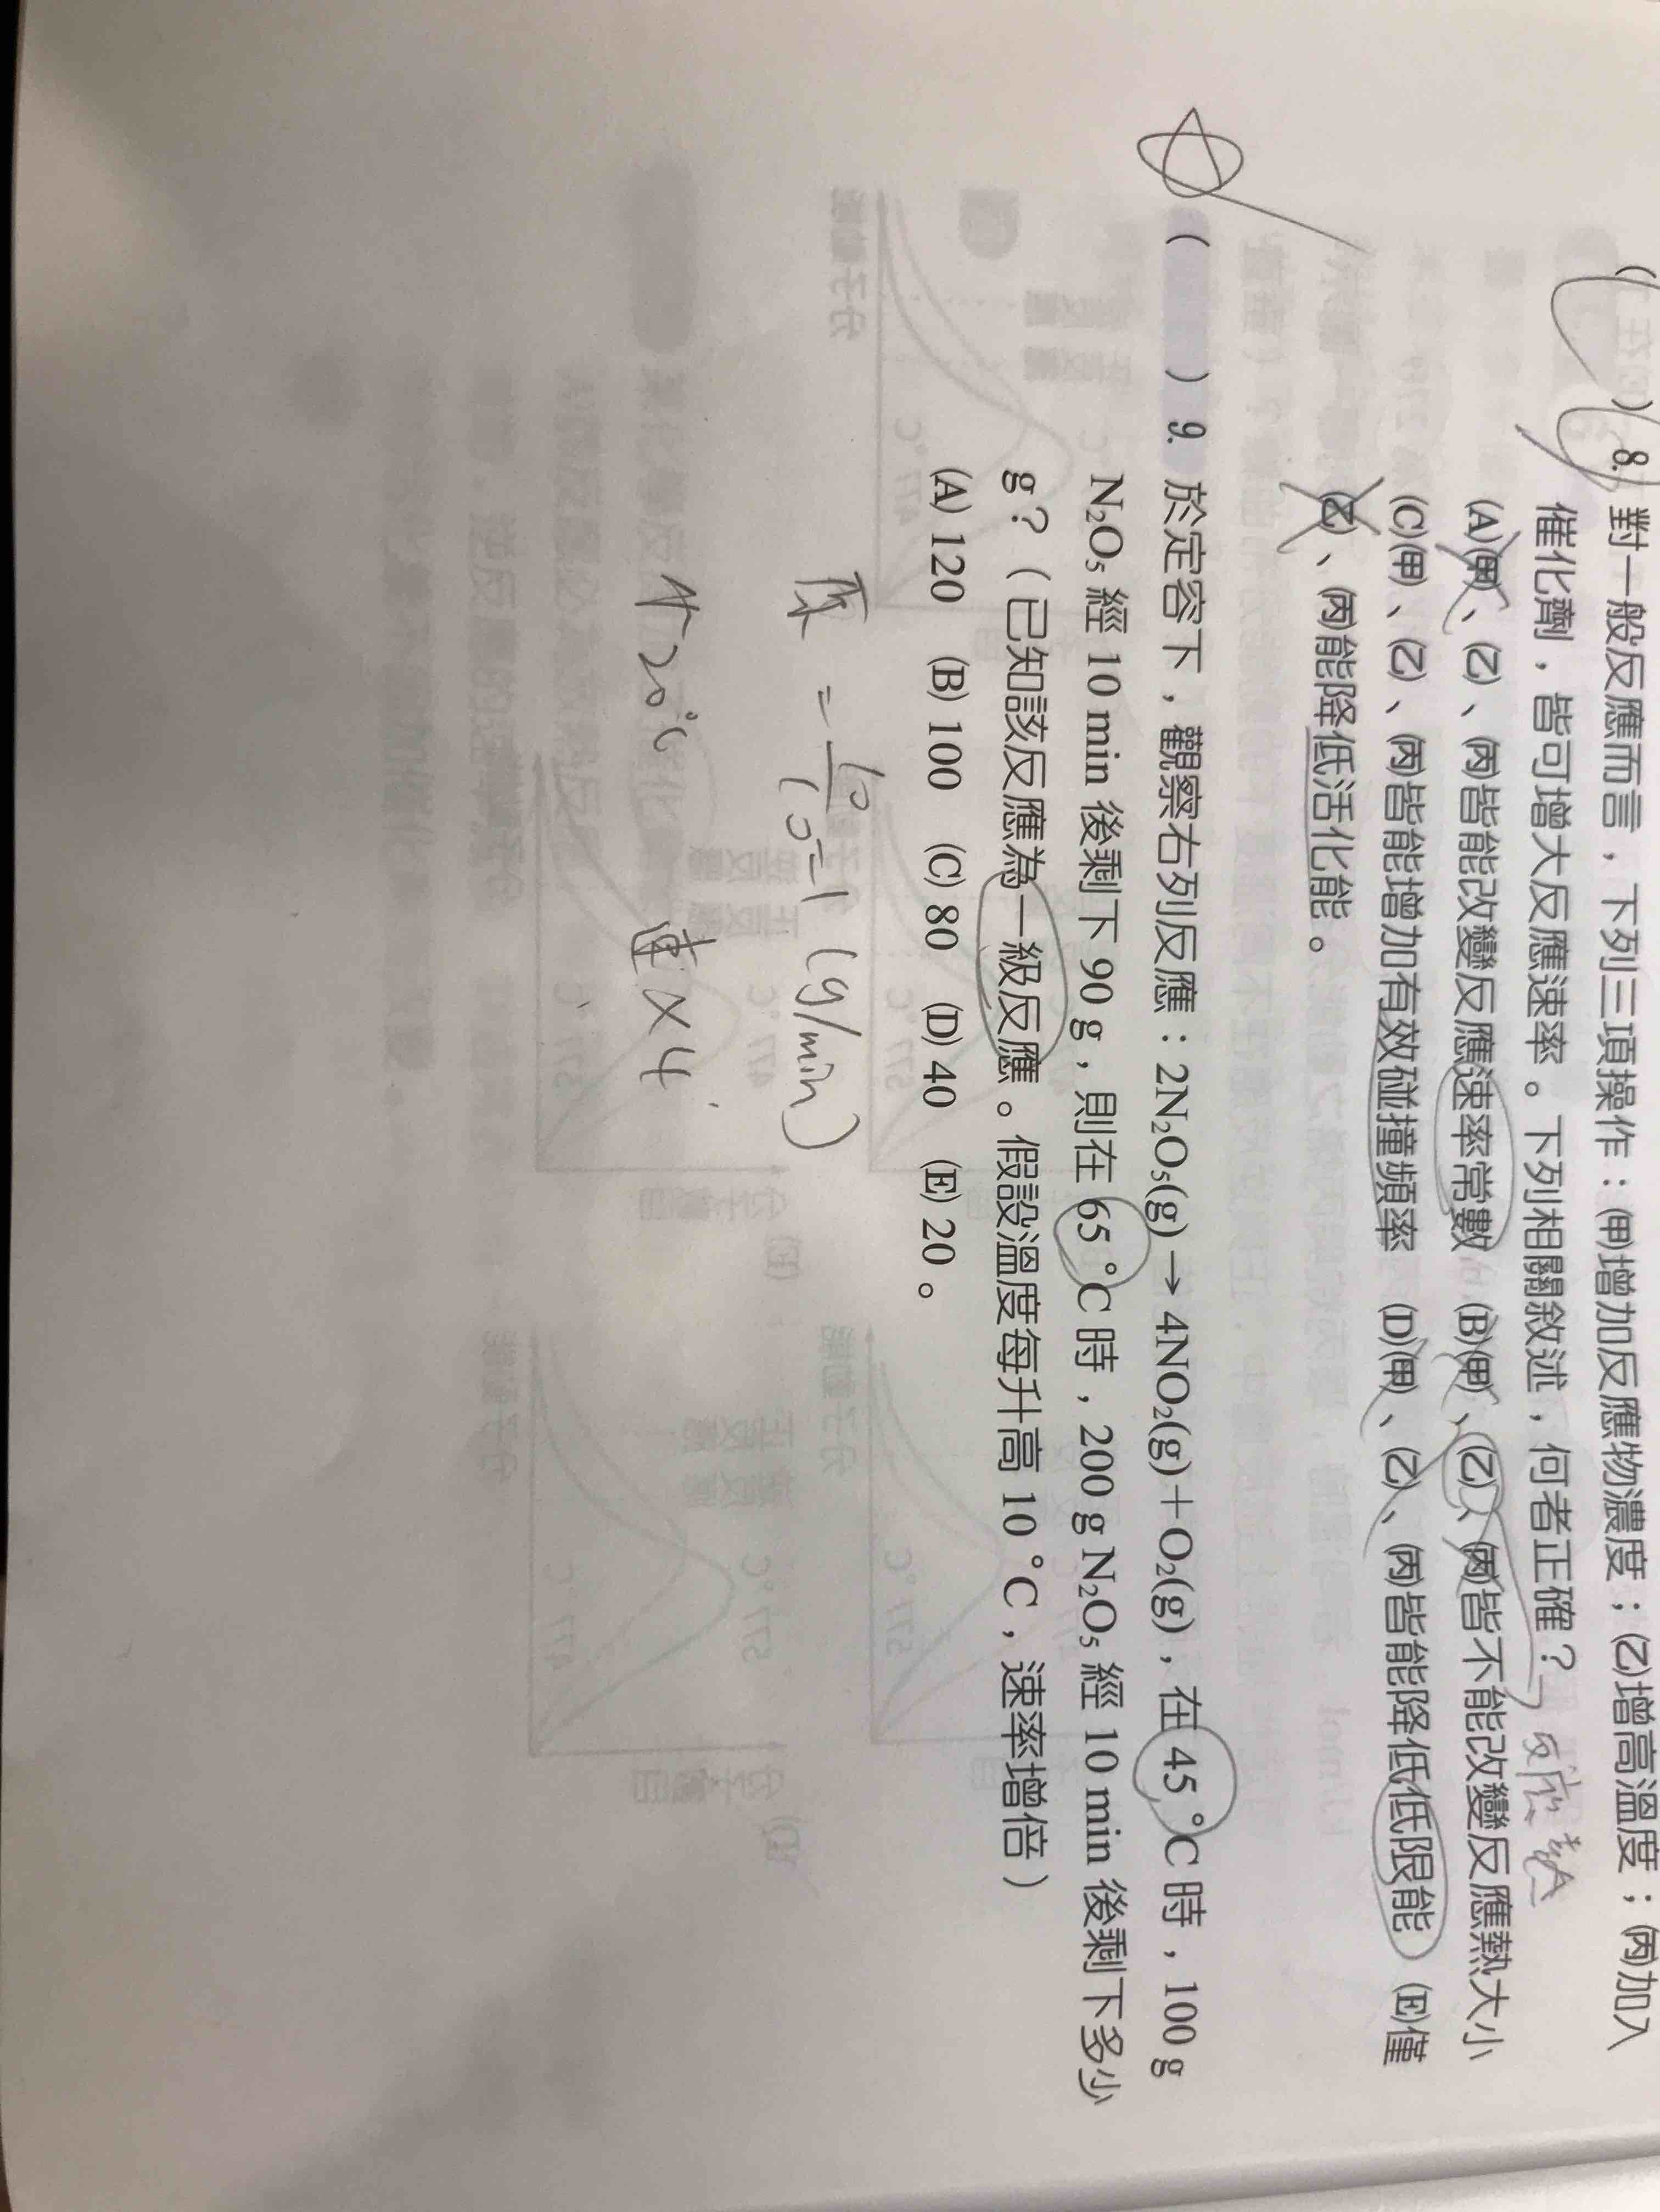 ( ) 8. 對一般反應而言，下列三項操作：(甲)增加反應物濃度；(乙)增高溫度；(丙)加入
催化劑，皆可增大反應速率。下列相關敘述，何者正確？
反應熱
(A)(甲)、(乙)、(丙)皆能改變反應速率常數 (B)(甲)、(乙)、(丙)皆不能改變反應熱大小
(C)(甲)、(乙)、(丙)皆能增加有效碰撞頻率 (D)(甲)、(乙)、(丙)皆能降低低限能 (E)僅
(乙)、(丙)能降低活化能。
( ) 9. 於定容下，觀察右列反應：2N₂O₅(g)→4NO₂(g)＋O₂(g)，在 45 ℃時，100 g
N₂O₅ 經 10 min 後剩下 90 g，則在 65 ℃時，200 g N₂O₅ 經 10 min 後剩下多少
g？（已知該反應為一級反應。假設溫度每升高 10 ℃，速率增倍）
(A) 120 (B) 100 (C) 80 (D) 40 (E) 20。
原 = 10/10 = 1 (g/min)
升20℃ 速×4